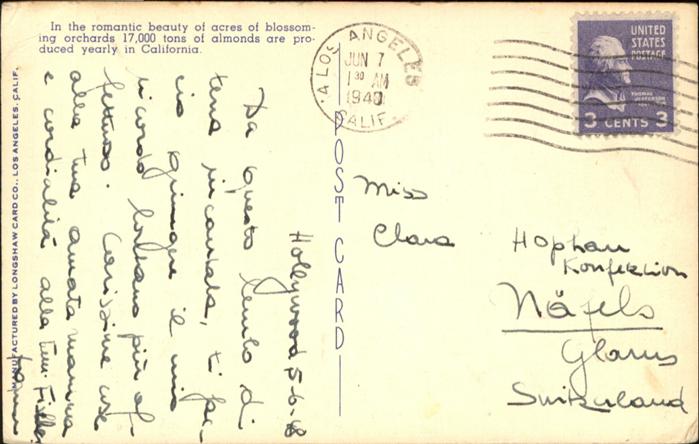 In the romantic beauty of acres of blossom-
ing orchards 17,000 tons of almonds are pro-
duced yearly in California.
LOS ANGELES
JUN 7
1 30 AM
CALIF.
UNITED
STATES
POSTAGE
THOMAS
JEFFERSON
3 CENTS 3
POST CARD
MANUFACTURED BY LONGSHAW CARD CO., LOS ANGELES, CALIF.
Hollywood 5-6-48
Da questo lembo di
terra incantata, ti
il mio
ricordo lontano più af-
fettuoso. Carissime cose
alla tua amata mamma
e cordialità alla
Miss
Clara
Hophan
Konfektion
Näfels
Glarus
Switzerland